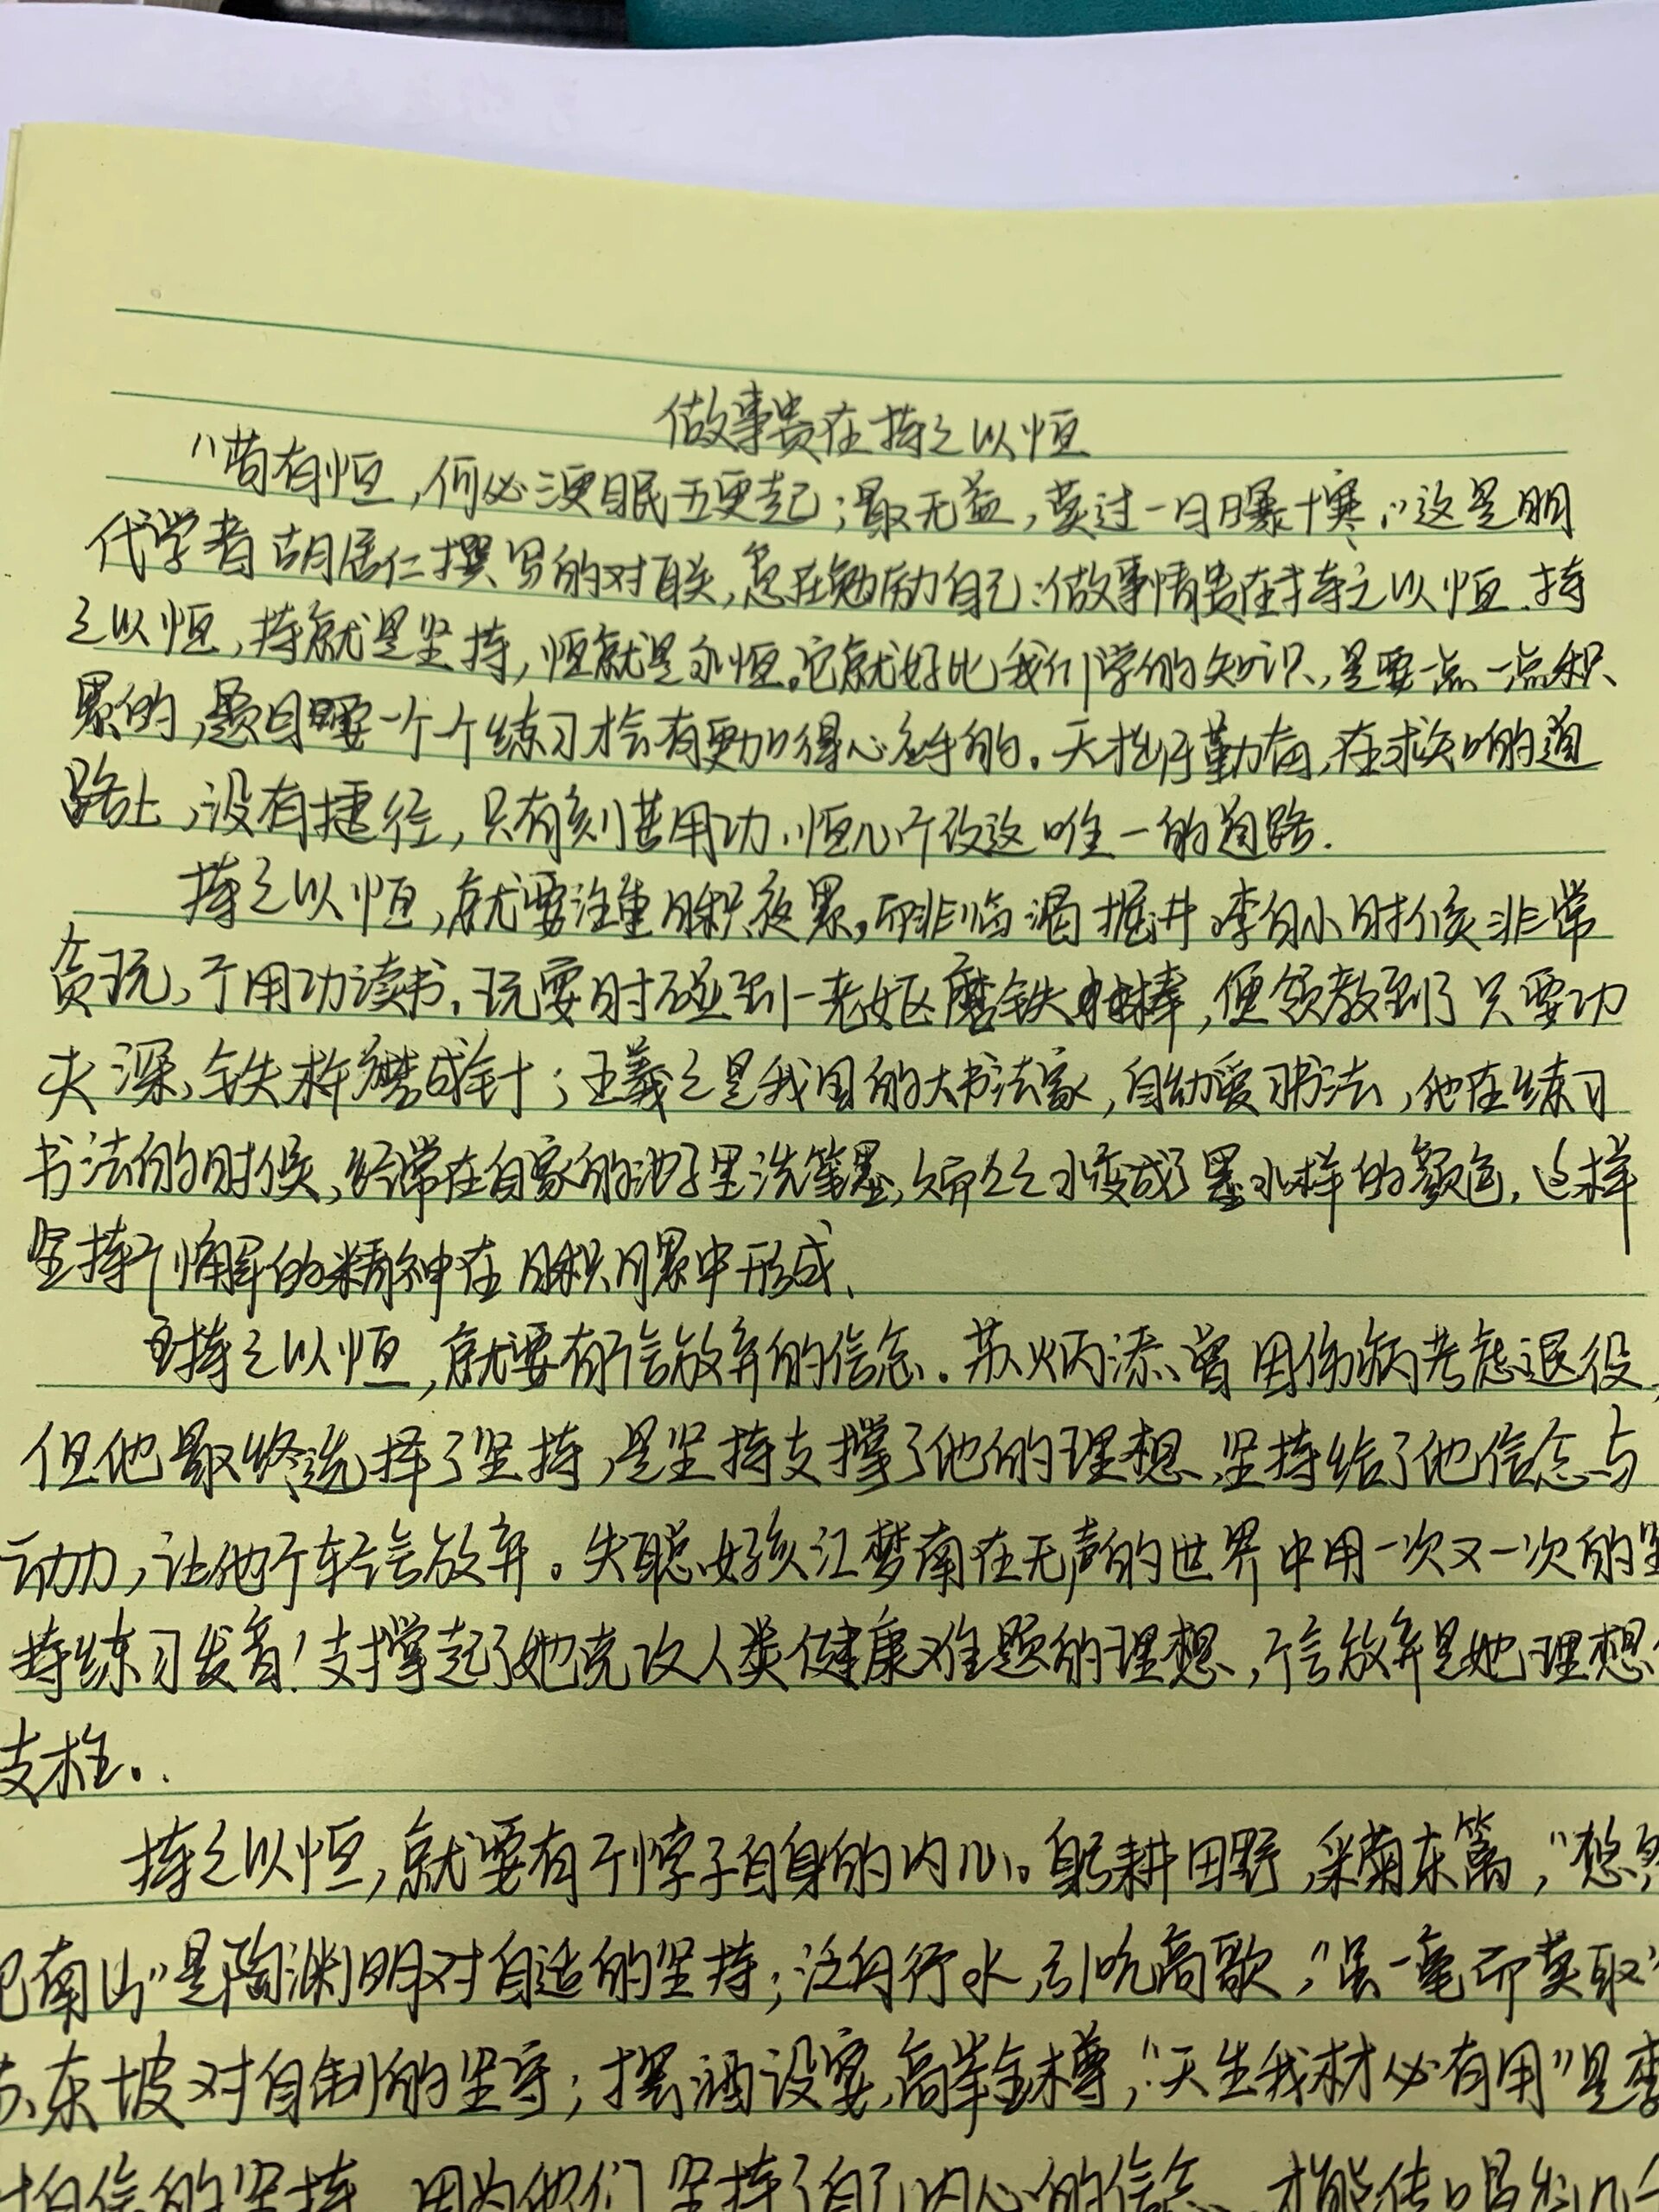 做事贵在持之以恒
"苟有恒，何必三更眠五更起；最无益，莫过一日曝十寒。"这是明
代学者胡居仁撰写的对联，意在勉励自己：做事情贵在持之以恒.持
之以恒，持就是坚持，恒就是永恒。它就好比我们学的知识，是要一点一点积
累的，题目要一个个练习才会有更加得心应手的。天才出于勤奋，在求知的道
路上，没有捷径，只有刻苦用功、恒心不改这唯一的道路.
持之以恒，就要注重日积夜累，而非临渴掘井.李白小时候非常
贪玩，不用功读书，玩耍时碰到一老妪磨铁棒，便领教到了只要功
夫深，铁杵磨成针；王羲之是我国的大书法家，自幼爱习书法，他在练习
书法的时候，经常在自家的池子里洗笔墨，水变成了墨水样的颜色，这样
坚持不懈的精神在日积月累中形成.
持之以恒，就要有不言放弃的信念.苏炳添曾因伤病考虑退役，
但他最终选择了坚持，是坚持支撑了他的理想，坚持给了他信念与
动力，让他不轻言放弃。失聪女孩江梦南在无声的世界中用一次又一次的坚
持练习发音！支撑起了她克攻人类健康难题的理想，不言放弃是她理想
支柱。
持之以恒，就要有不悖于自身的内心。躬耕田野，采菊东篱，"悠然
见南山"是陶渊明对自适的坚持；泛舟行水，引吭高歌，"虽一毫而莫取"
苏东坡对自制的坚守；摆酒设宴，高举金樽，"天生我材必有用"是李
对自信的坚持 因为他们坚持了自己内心的信念，才能传唱